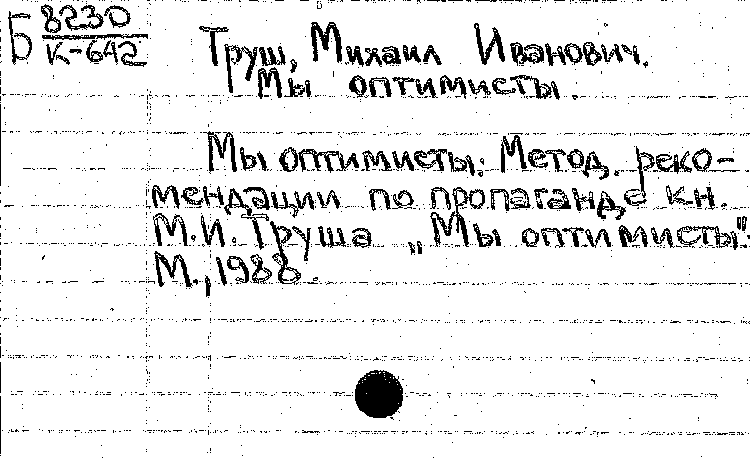 Б 8230
К-642
Труш, Михаил Иванович.
Мы оптимисты.
Мы оптимисты: Метод. реко-
мендации по пропаганде кн.
М.И. Труша „Мы оптимисты":
М., 1988.